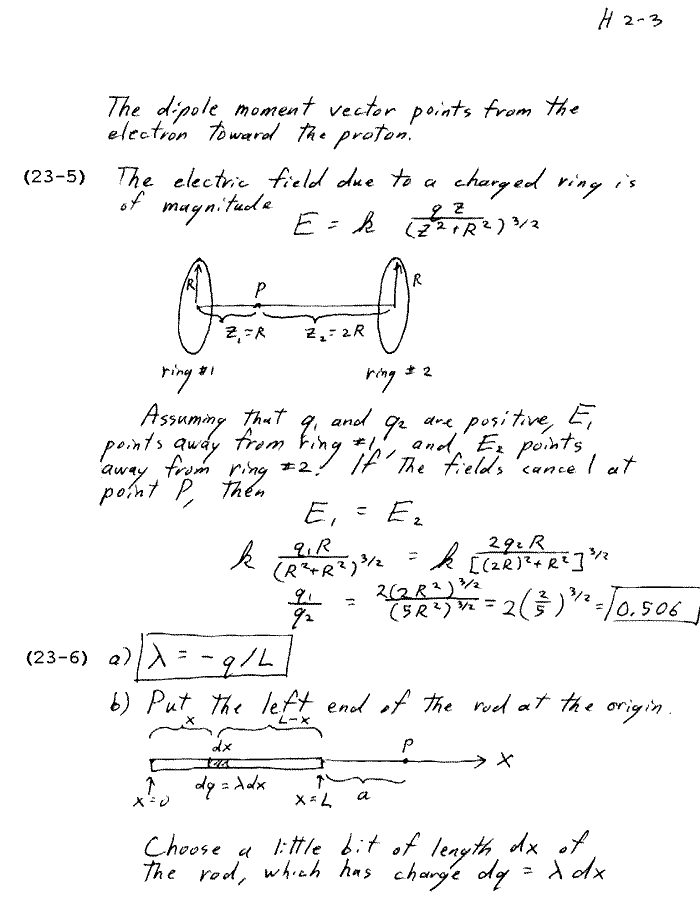 H 2-3
The dipole moment vector points from the
electron toward the proton.
(23-5) The electric field due to a charged ring is
of magnitude E = k qz/(z²+R²)^3/2
R P R
z₁=R z₂=2R
ring #1 ring #2
Assuming that q₁ and q₂ are positive, E₁
points away from ring #1, and E₂ points
away from ring #2. If the fields cancel at
point P, then
E₁ = E₂
k q₁R/(R²+R²)^3/2 = k 2q₂R/[(2R)²+R²]^3/2
q₁/q₂ = 2(2R²)^3/2/(5R²)^3/2 = 2(2/5)^3/2 = 0.506
(23-6) a) λ = -q/L
b) Put the left end of the rod at the origin.
x L-x
dx P
x
dq = λdx
x=0 x=L a
Choose a little bit of length dx of
the rod, which has charge dq = λ dx